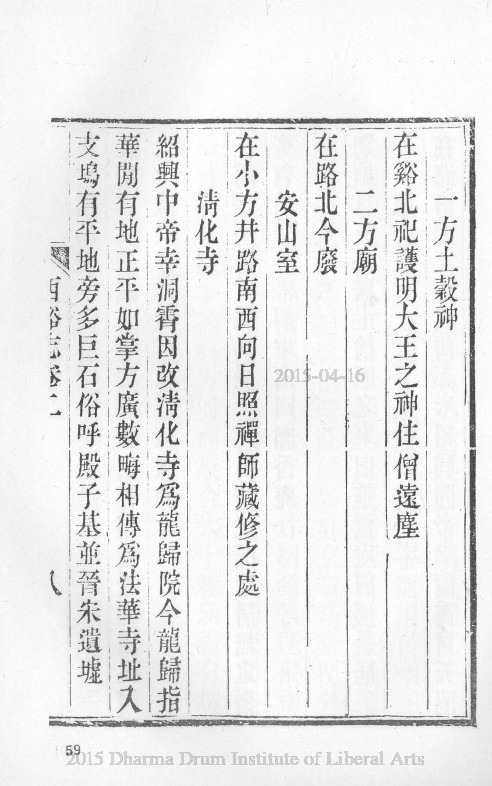 一方土穀神
在谿北祀護明大王之神住僧遠塵
二方廟
在路北今廢
安山室
在小方井路南西向日照禪師藏修之處
淸化寺
紹興中帝幸洞霄因改淸化寺爲龍歸院今龍歸指
華閒有地正平如掌方廣數畮相傳爲法華寺址入
支塢有平地旁多巨石俗呼殿子基並晉朱遺墟
西谿志卷二
八
59
2015-04-16
2015 Dharma Drum Institute of Liberal Arts